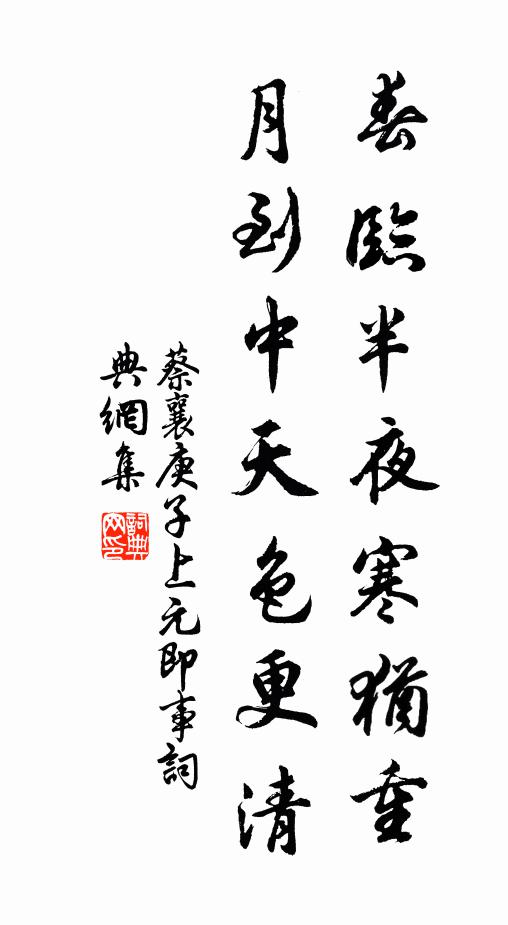 春臨半夜寒猶重
月到中天色更清
蔡襄庚子上元即事詞
典網集
詞典
网印